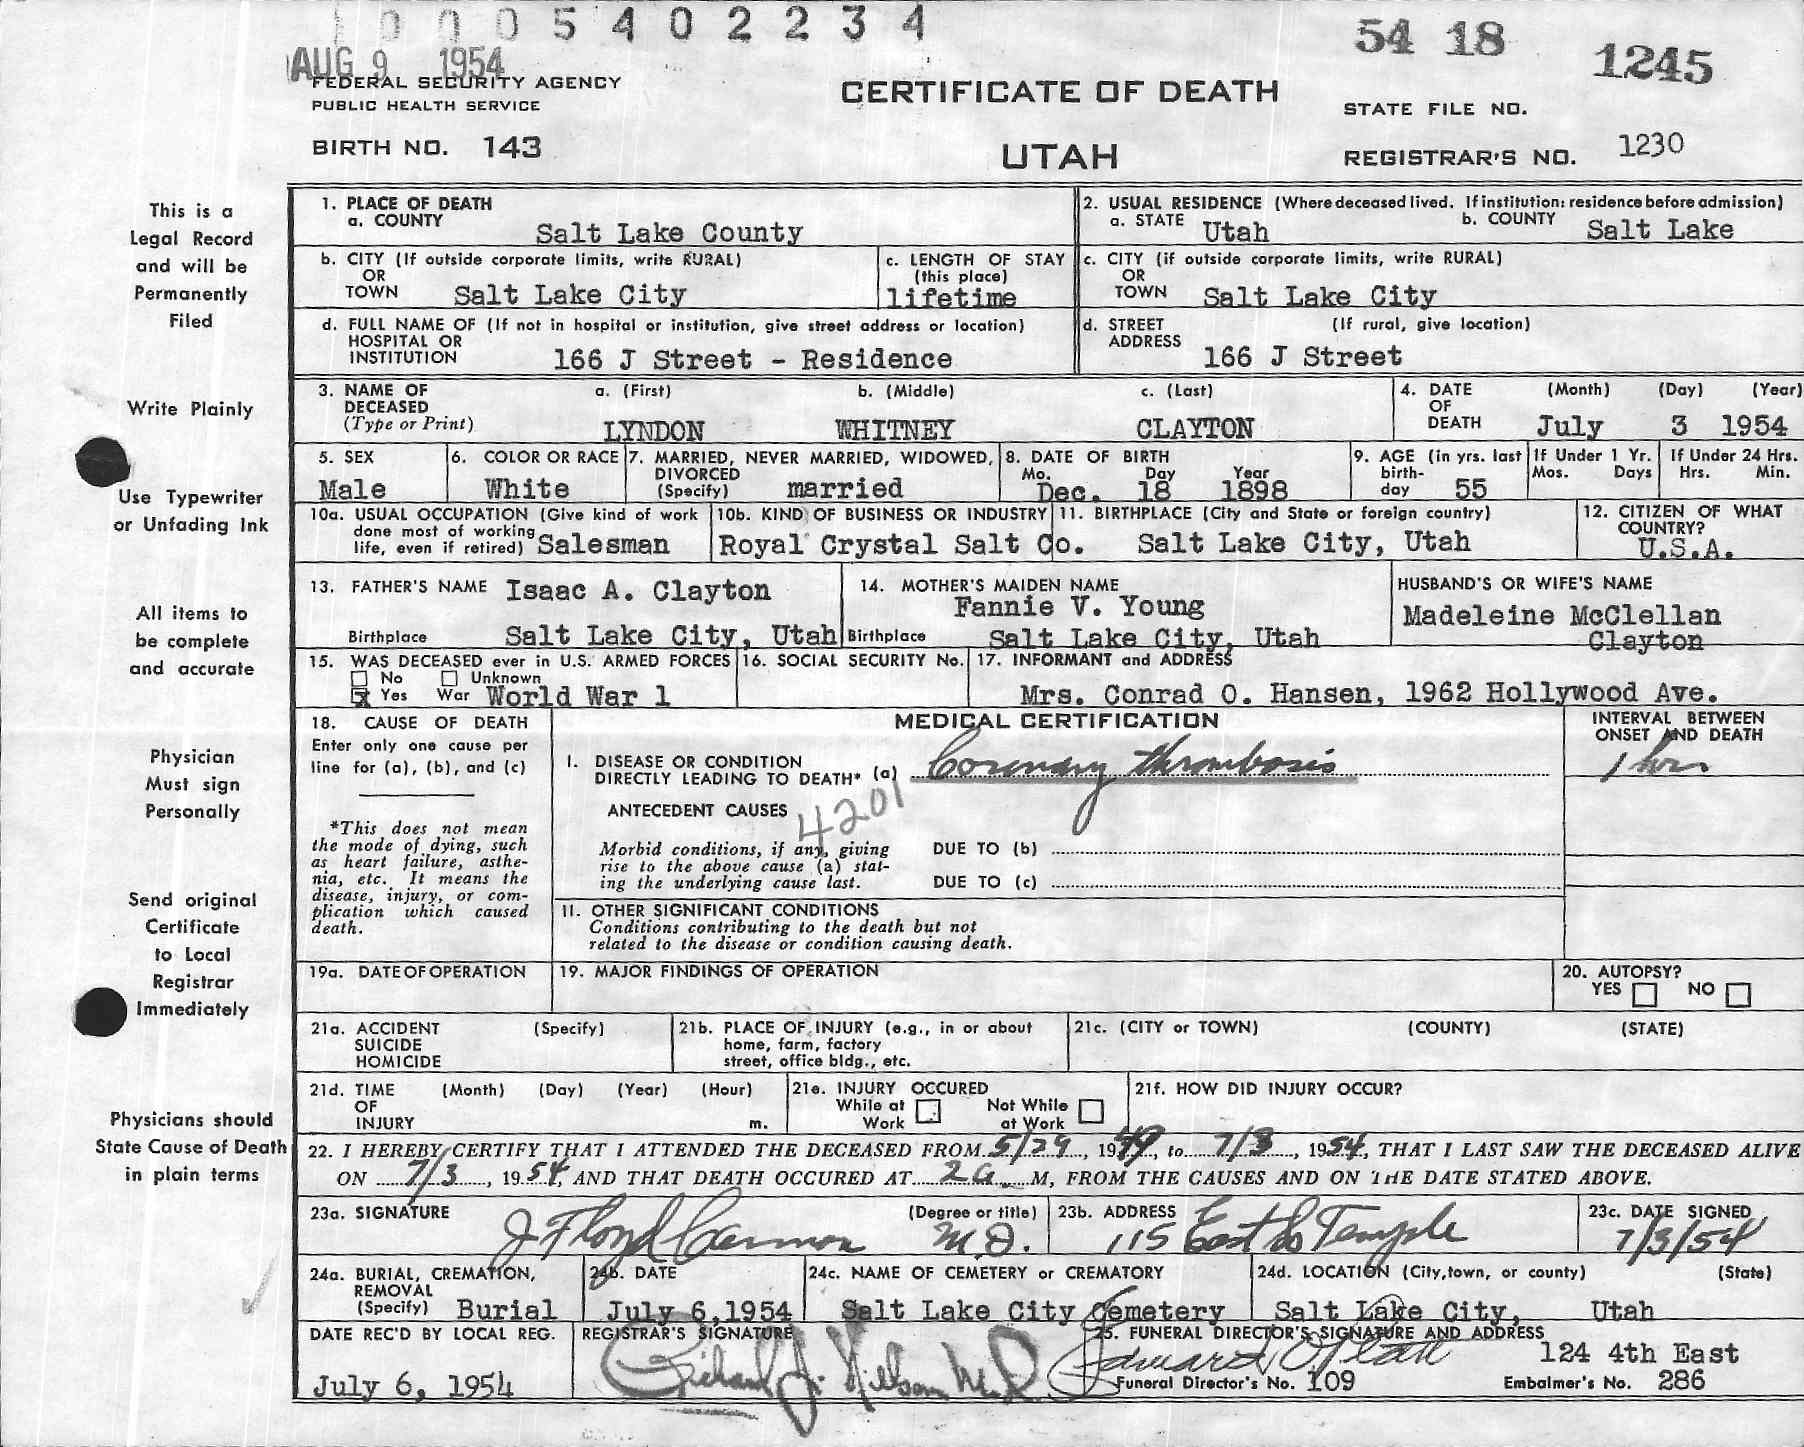 1 0 0 0 5 4 0 2 2 3 4
AUG 9 1954
54 18 1245
FEDERAL SECURITY AGENCY
PUBLIC HEALTH SERVICE
CERTIFICATE OF DEATH
STATE FILE NO.
BIRTH NO. 143
UTAH
REGISTRAR'S NO. 1230
This is a
Legal Record
and will be
Permanently
Filed
Write Plainly
Use Typewriter
or Unfading Ink
All items to
be complete
and accurate
Physician
Must sign
Personally
Send original
Certificate
to Local
Registrar
Immediately
Physicians should
State Cause of Death
in plain terms
1. PLACE OF DEATH
a. COUNTY Salt Lake County
2. USUAL RESIDENCE (Where deceased lived. If institution: residence before admission)
a. STATE Utah b. COUNTY Salt Lake
b. CITY (If outside corporate limits, write RURAL)
OR
TOWN Salt Lake City
c. LENGTH OF STAY
(this place)
lifetime
c. CITY (if outside corporate limits, write RURAL)
OR
TOWN Salt Lake City
d. FULL NAME OF (If not in hospital or institution, give street address or location)
HOSPITAL OR
INSTITUTION 166 J Street - Residence
d. STREET (If rural, give location)
ADDRESS 166 J Street
3. NAME OF a. (First) b. (Middle) c. (Last)
DECEASED
(Type or Print) LYNDON WHITNEY CLAYTON
4. DATE (Month) (Day) (Year)
OF
DEATH July 3 1954
5. SEX
Male
6. COLOR OR RACE
White
7. MARRIED, NEVER MARRIED, WIDOWED,
DIVORCED
(Specify) married
8. DATE OF BIRTH
Mo. Day Year
Dec. 18 1898
9. AGE (in yrs. last
birth-
day 55
If Under 1 Yr.
Mos. Days
If Under 24 Hrs.
Hrs. Min.
10a. USUAL OCCUPATION (Give kind of work
done most of working
life, even if retired) Salesman
10b. KIND OF BUSINESS OR INDUSTRY
Royal Crystal Salt Co.
11. BIRTHPLACE (City and State or foreign country)
Salt Lake City, Utah
12. CITIZEN OF WHAT
COUNTRY?
U.S.A.
13. FATHER'S NAME Isaac A. Clayton
Birthplace Salt Lake City, Utah
14. MOTHER'S MAIDEN NAME
Fannie V. Young
Birthplace Salt Lake City, Utah
HUSBAND'S OR WIFE'S NAME
Madeleine McClellan
Clayton
15. WAS DECEASED ever in U.S. ARMED FORCES
No Unknown
x Yes War World War 1
16. SOCIAL SECURITY No.
17. INFORMANT and ADDRESS
Mrs. Conrad O. Hansen, 1962 Hollywood Ave.
18. CAUSE OF DEATH
Enter only one cause per
line for (a), (b), and (c)
*This does not mean
the mode of dying, such
as heart failure, asthe-
nia, etc. It means the
disease, injury, or com-
plication which caused
death.
MEDICAL CERTIFICATION
I. DISEASE OR CONDITION
DIRECTLY LEADING TO DEATH* (a) Coronary thrombosis
ANTECEDENT CAUSES
4201
Morbid conditions, if any, giving
rise to the above cause (a) stat-
ing the underlying cause last.
DUE TO (b)
DUE TO (c)
INTERVAL BETWEEN
ONSET AND DEATH
1 hr
II. OTHER SIGNIFICANT CONDITIONS
Conditions contributing to the death but not
related to the disease or condition causing death.
19a. DATE OF OPERATION
19. MAJOR FINDINGS OF OPERATION
20. AUTOPSY?
YES NO
21a. ACCIDENT (Specify)
SUICIDE
HOMICIDE
21b. PLACE OF INJURY (e.g., in or about
home, farm, factory
street, office bldg., etc.
21c. (CITY or TOWN) (COUNTY) (STATE)
21d. TIME (Month) (Day) (Year) (Hour)
OF
INJURY m.
21e. INJURY OCCURED
While at Not While
Work at Work
21f. HOW DID INJURY OCCUR?
22. I HEREBY CERTIFY THAT I ATTENDED THE DECEASED FROM 5/29, 19 to 7/3, 1954, THAT I LAST SAW THE DECEASED ALIVE
ON 7/3, 1954, AND THAT DEATH OCCURED AT 2 a M, FROM THE CAUSES AND ON THE DATE STATED ABOVE.
23a. SIGNATURE (Degree or title)
J Floyd Cannon M.D.
23b. ADDRESS
115 East So Temple
23c. DATE SIGNED
7/3/54
24a. BURIAL, CREMATION,
REMOVAL
(Specify) Burial
24b. DATE
July 6, 1954
24c. NAME OF CEMETERY or CREMATORY
Salt Lake City Cemetery
24d. LOCATION (City, town, or county) (State)
Salt Lake City, Utah
DATE REC'D BY LOCAL REG.
July 6, 1954
REGISTRAR'S SIGNATURE
Richard J. Nilson M.D.
25. FUNERAL DIRECTOR'S SIGNATURE AND ADDRESS
Edward 124 4th East
Funeral Director's No. 109 Embalmer's No. 286